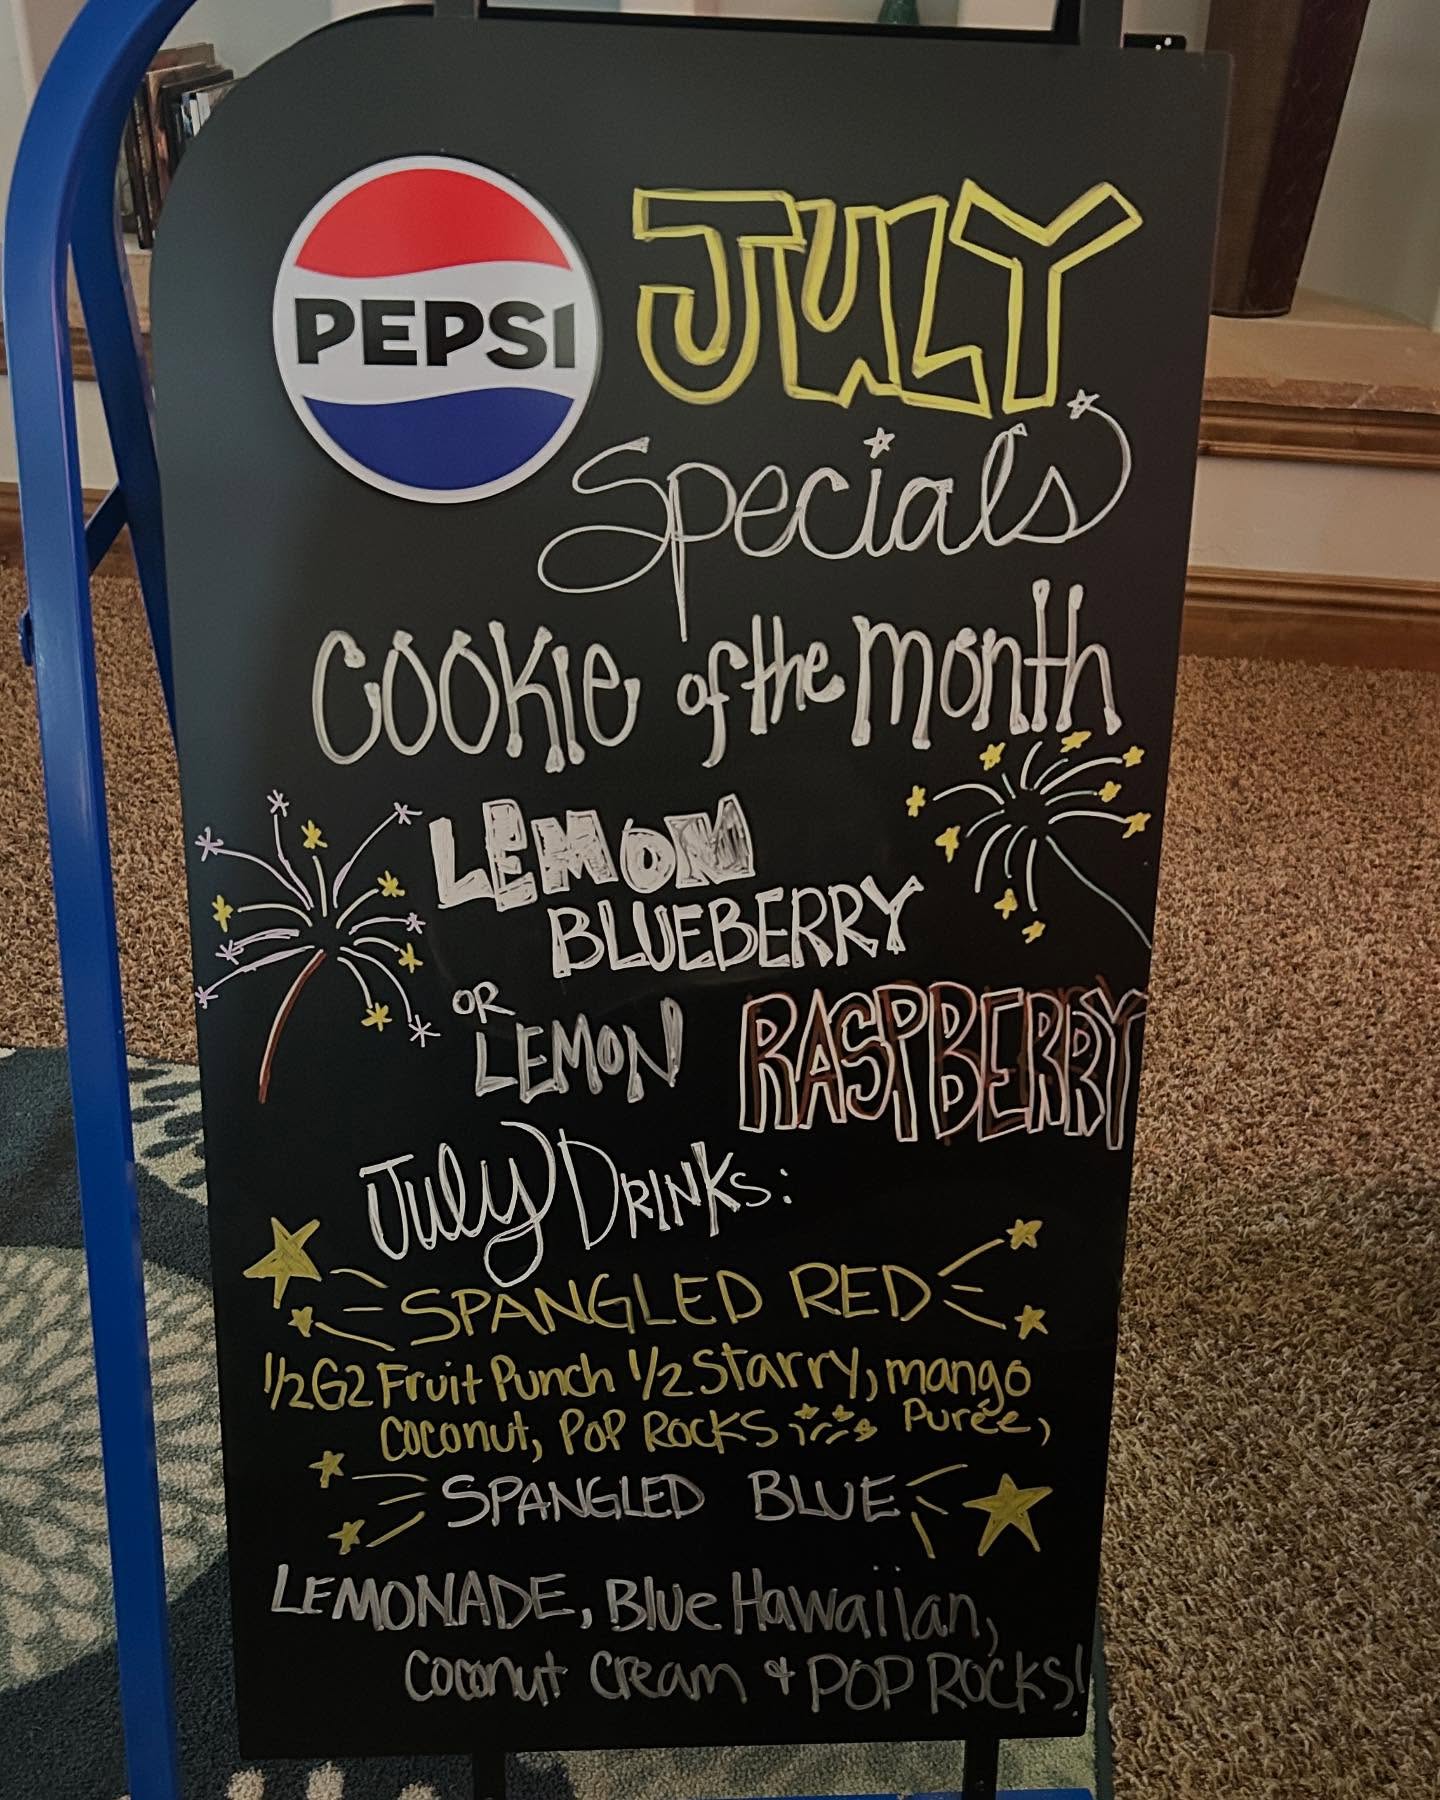 PEPSI
JULY
Specials
COOKIE of the month
LEMON
BLUEBERRY
OR
LEMON RASPBERRY
July DRINKS:
SPANGLED RED
1/2 G2 Fruit Punch 1/2 Starry, mango
Coconut, POP ROCKS Purée,
SPANGLED BLUE
LEMONADE, Blue Hawaiian,
Coconut Cream + POP ROCKS!